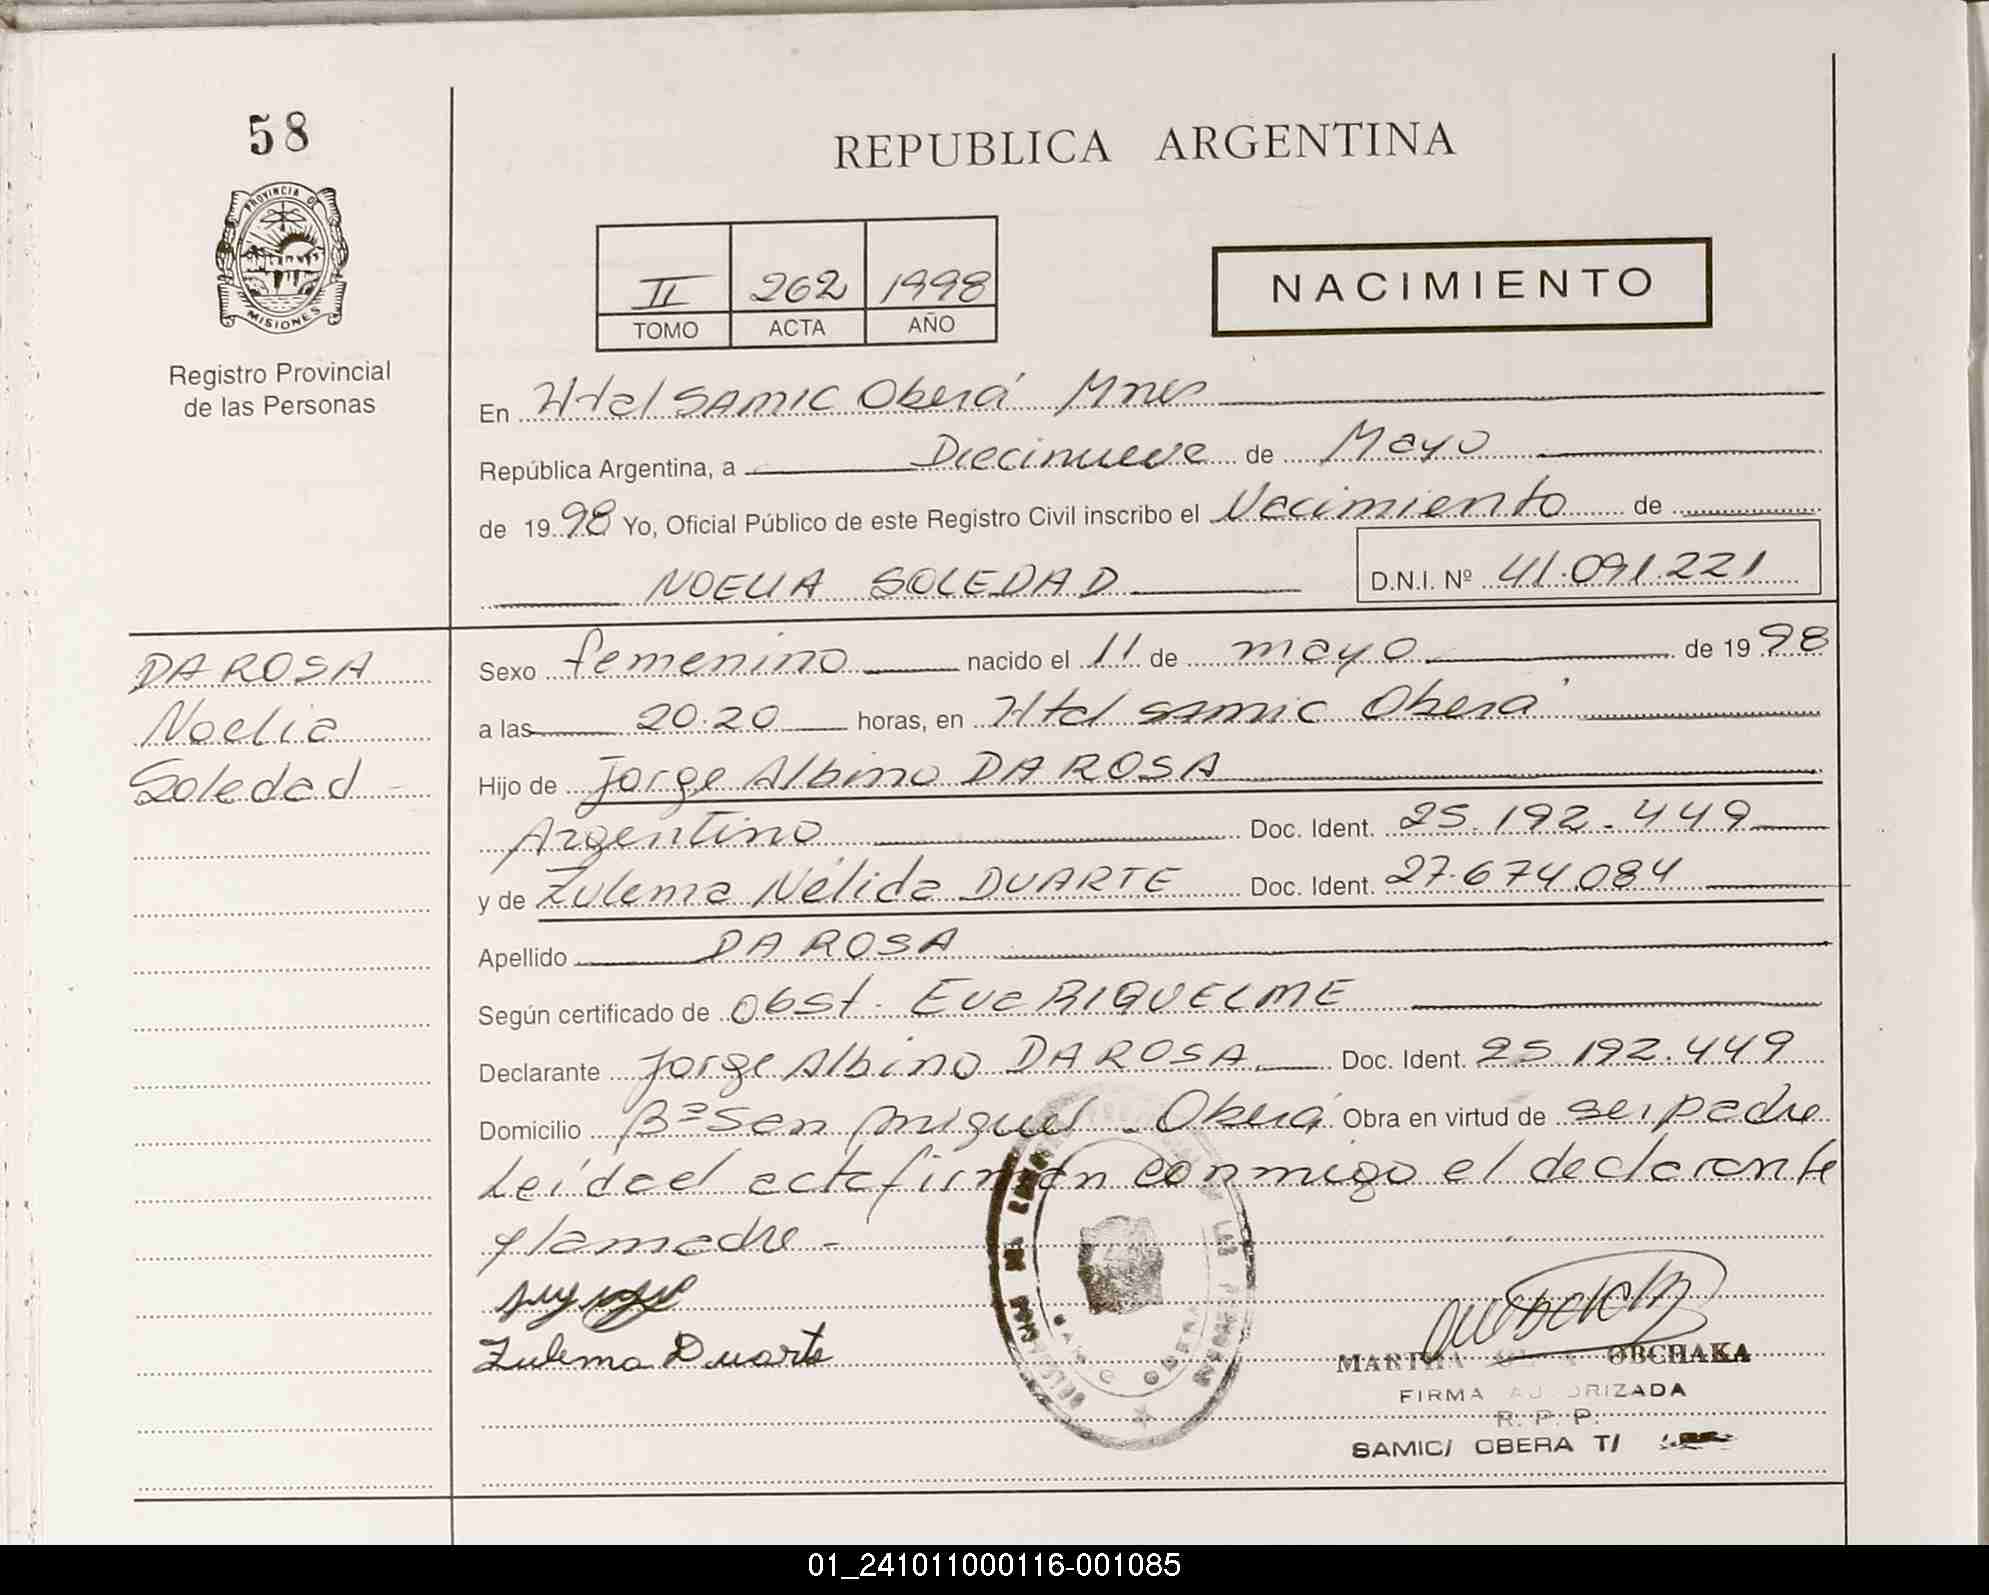 58
PROVINCIA DE
MISIONES
Registro Provincial
de las Personas
REPUBLICA ARGENTINA
II 262 1998
TOMO ACTA AÑO
NACIMIENTO
En Htal SAMIC Oberá Mnes
República Argentina, a Diecinueve de Mayo
de 1998 Yo, Oficial Público de este Registro Civil inscribo el Nacimiento de
NOELIA SOLEDAD D.N.I. Nº 41.091.221
DA ROSA
Noelia
Soledad
Sexo femenino nacido el 11 de mayo de 1998
a las 20.20 horas, en Htal samic Oberá
Hijo de Jorge Albino DA ROSA
Argentino Doc. Ident. 25.192.449
y de Zulema Nélida DUARTE Doc. Ident. 27.674.084
Apellido DA ROSA
Según certificado de Obst. Eva RIQUELME
Declarante Jorge Albino DA ROSA Doc. Ident. 25.192.449
Domicilio Bº San Miguel - Oberá Obra en virtud de ser padre
Leída el acta firman conmigo el declarante
y la madre -
Zulema Duarte
MARTHA OBCHAKA
FIRMA AUTORIZADA
R. P. P.
SAMIC/ OBERA T/
01_241011000116-001085